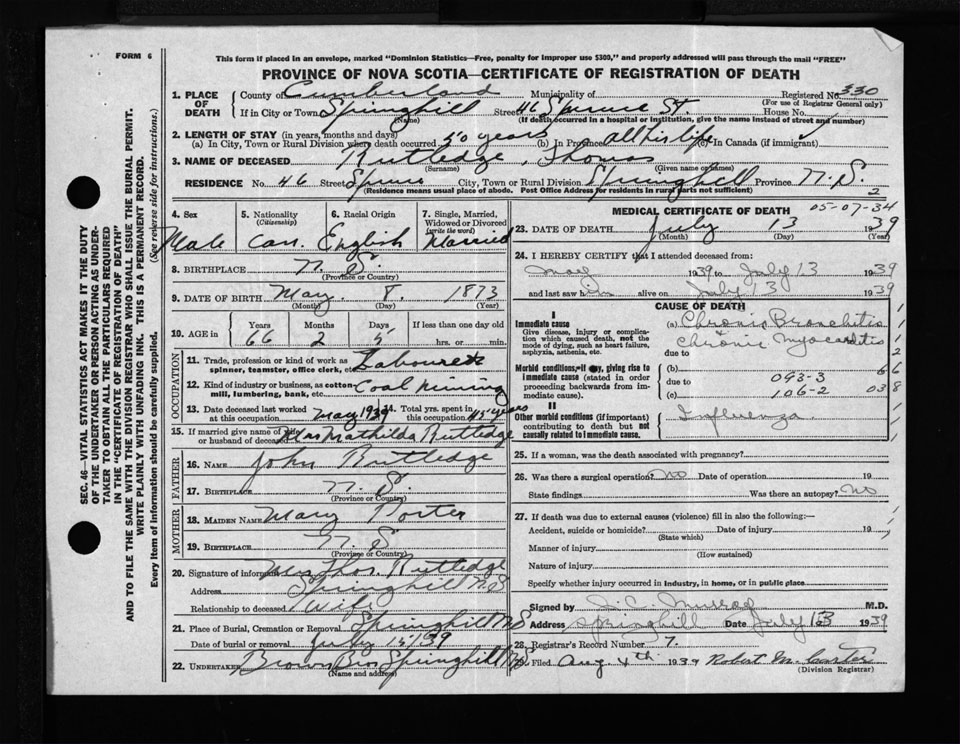 FORM 6
This form if placed in an envelope, marked "Dominion Statistics—Free, penalty for improper use $300," and properly addressed will pass through the mail "FREE"
PROVINCE OF NOVA SCOTIA—CERTIFICATE OF REGISTRATION OF DEATH
1. PLACE OF DEATH
County of Cumberland Municipality of Registered No. 330
(For use of Registrar General only)
If in City or Town Springhill Street 46 Spruce St. House No.
(Name) (If death occurred in a hospital or institution, give the name instead of street and number)
2. LENGTH OF STAY (in years, months and days)
(a) In City, Town or Rural Division where death occurred 50 years (b) In Province all his life (c) In Canada (if immigrant)
3. NAME OF DECEASED Rutledge, Thomas
(Surname) (Given name or names)
RESIDENCE No. 46 Street Spruce City, Town or Rural Division Springhill Province N.S.
(Residence means usual place of abode. Post Office Address for residents in rural parts not sufficient) 2
4. Sex Male
5. Nationality (Citizenship) Can.
6. Racial Origin English
7. Single, Married, Widowed or Divorced (write the word) Married
8. BIRTHPLACE N. S.
(Province or Country)
9. DATE OF BIRTH May 8. 1873
(Month) (Day) (Year)
10. AGE in Years 66 Months 2 Days 5 If less than one day old hrs. or min.
OCCUPATION
11. Trade, profession or kind of work as spinner, teamster, office clerk, etc. Labourer
12. Kind of industry or business, as cotton mill, lumbering, bank, etc. Coal Mining
13. Date deceased last worked at this occupation May 1939 14. Total yrs. spent in this occupation 45 years
15. If married give name of wife or husband of deceased Mrs Mathilda Rutledge
FATHER
16. NAME John Rutledge
17. BIRTHPLACE N. S.
(Province or Country)
MOTHER
18. MAIDEN NAME Mary Porter
19. BIRTHPLACE N. S
(Province or Country)
20. Signature of informant Mrs Thos. Rutledge
Address Springhill N.S
Relationship to deceased Wife
21. Place of Burial, Cremation or Removal Springhill N.S
Date of burial or removal July 15/39
22. UNDERTAKER Brown Bros Springhill N.S
(Name and address)
MEDICAL CERTIFICATE OF DEATH 05-07-34
23. DATE OF DEATH July 13 1939
(Month) (Day) (Year)
24. I HEREBY CERTIFY that I attended deceased from:
May 1939 to July 13 1939
and last saw him alive on July 13 1939
CAUSE OF DEATH
I
Immediate cause
Give disease, injury or complication which caused death, not the mode of dying, such as heart failure, asphyxia, asthenia, etc.
(a) Chronic Bronchitis
+ Chronic Myocarditis
due to
Morbid conditions, if any, giving rise to immediate cause (stated in order proceeding backwards from immediate cause).
(b)
due to 093-3
(c) 106-2
II
Other morbid conditions (if important) contributing to death but not causally related to immediate cause.
Influenza
25. If a woman, was the death associated with pregnancy?
26. Was there a surgical operation? No Date of operation 19
State findings Was there an autopsy? No
27. If death was due to external causes (violence) fill in also the following:—
Accident, suicide or homicide? Date of injury 19
(State which)
Manner of injury
(How sustained)
Nature of injury
Specify whether injury occurred in industry, in home, or in public place
Signed by M.D.
Address Springhill Date July 13 1939
28. Registrar's Record Number 7.
29. Filed Aug 4th 1939 Robert M. Carter
(Division Registrar)
SEC. 46—VITAL STATISTICS ACT MAKES IT THE DUTY
OF THE UNDERTAKER OR PERSON ACTING AS UNDER-
TAKER TO OBTAIN ALL THE PARTICULARS REQUIRED
IN THE "CERTIFICATE OF REGISTRATION OF DEATH"
AND TO FILE THE SAME WITH THE DIVISION REGISTRAR WHO SHALL ISSUE THE BURIAL PERMIT.
WRITE PLAINLY WITH UNFADING INK. THIS IS A PERMANENT RECORD.
Every item of information should be carefully supplied. (See reverse side for instructions.)